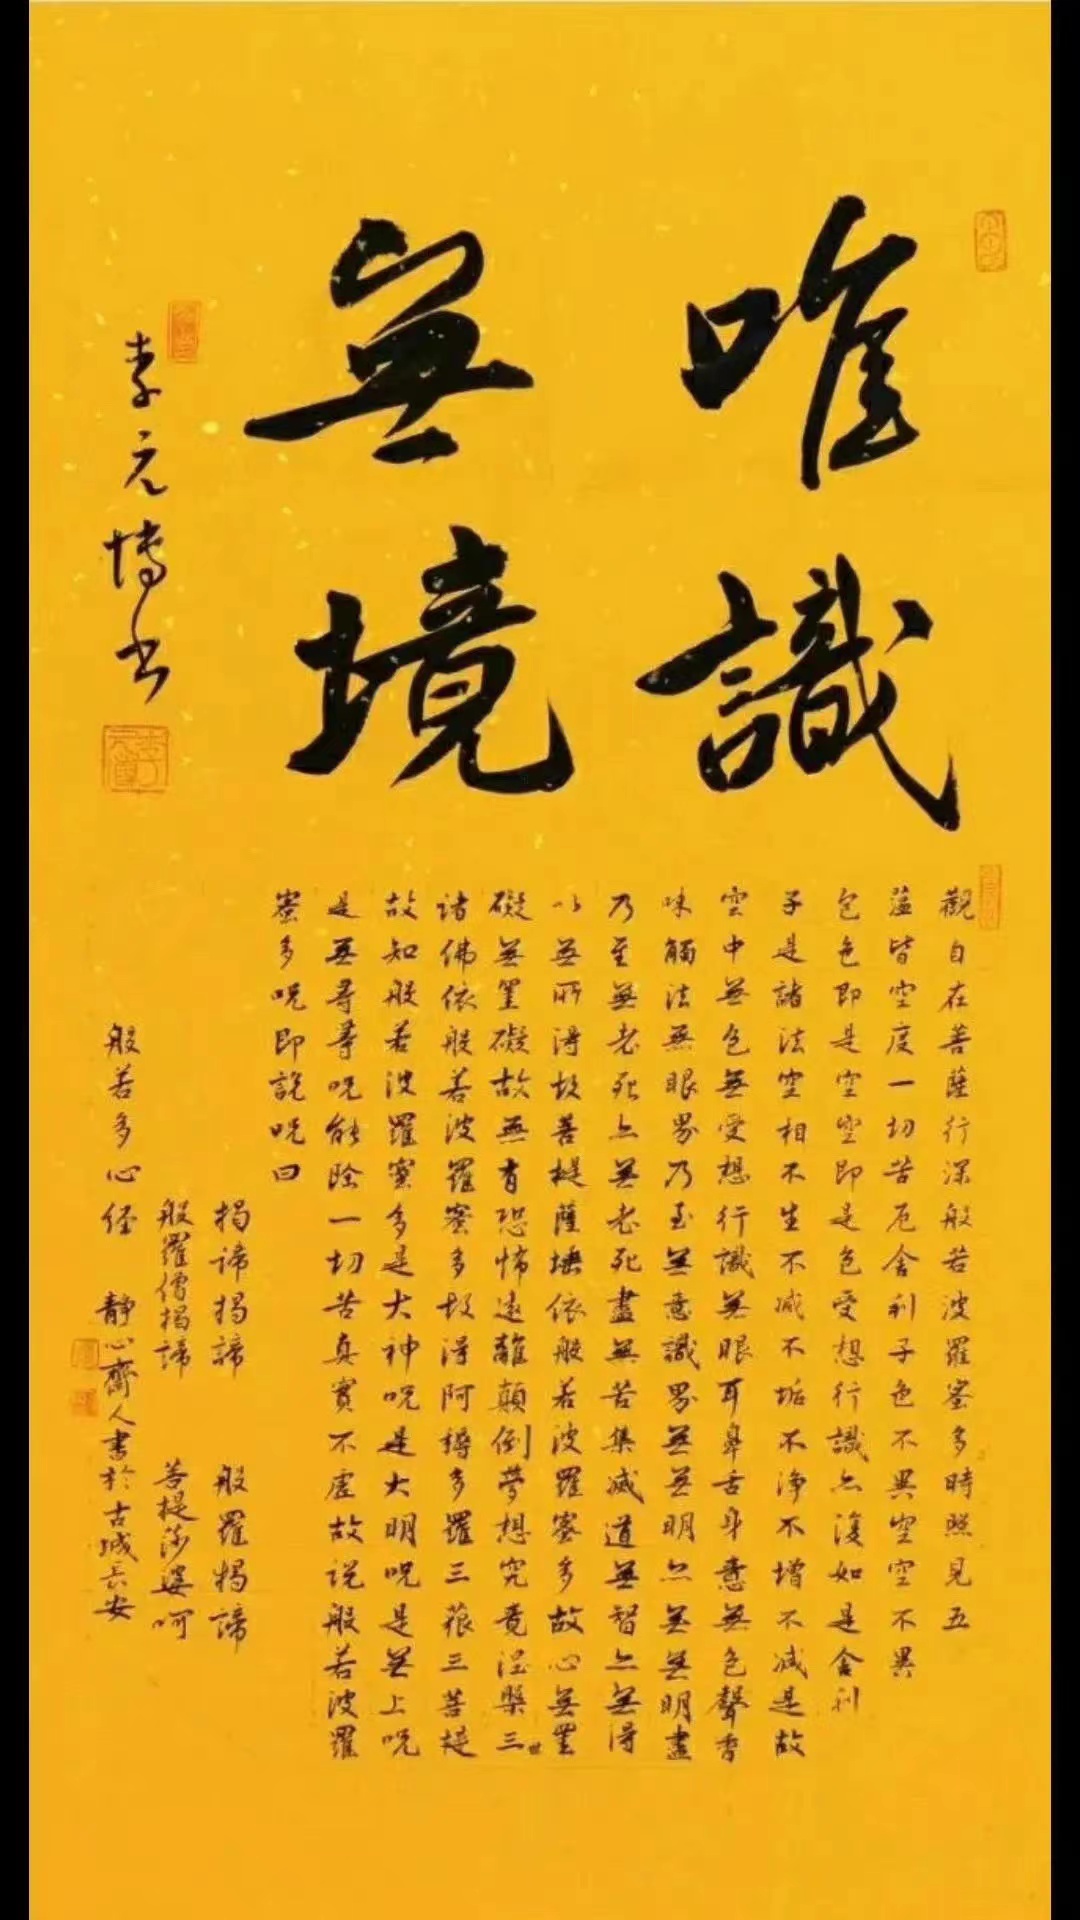 唯識
無境
李元博书
觀自在菩薩行深般若波羅蜜多時照見五
蕴皆空度一切苦厄舍利子色不異空空不異
色色即是空空即是色受想行識亦復如是舍利
子是諸法空相不生不滅不垢不淨不增不减是故
空中無色無受想行識無眼耳鼻舌身意無色聲香
味觸法無眼界乃至無意識界無無明亦無無明盡
乃至無老死亦無老死盡無苦集滅道無智亦無得
以無所得故菩提薩埵依般若波羅蜜多故心無罣
礙無罣礙故無有恐怖遠離顛倒夢想究竟涅槃三世
诸佛依般若波羅蜜多故得阿耨多羅三藐三菩提
故知般若波羅蜜多是大神呪是大明呪是無上呪
是無等等呪能除一切苦真實不虛故説般若波羅
蜜多呪即説呪曰
揭諦揭諦 般羅揭諦
般羅僧揭諦 菩提莎婆呵
般若多心経 靜心齋人書於古城長安